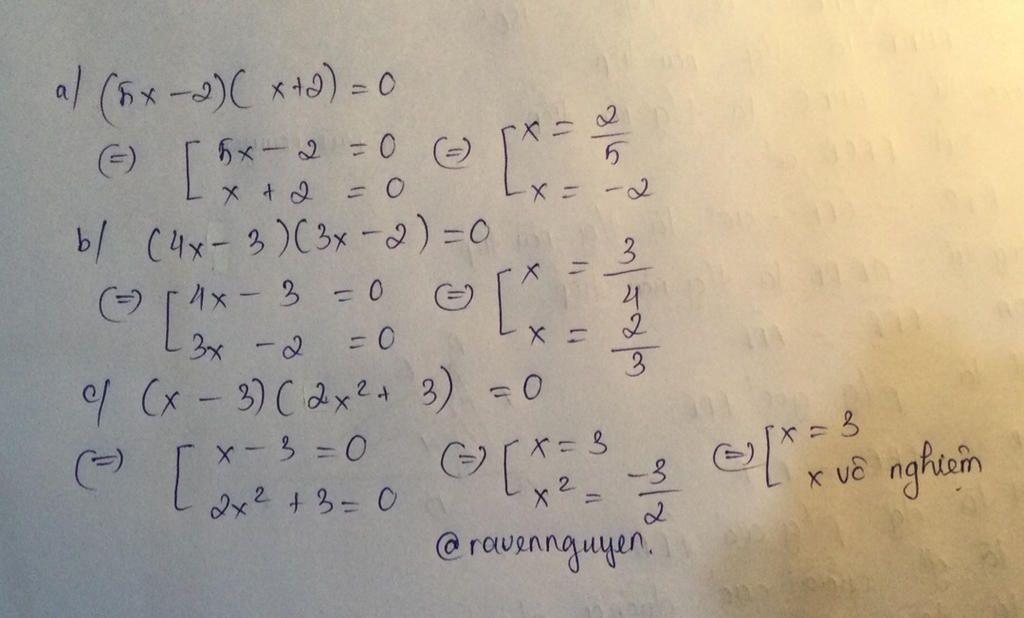 a/ (5x - 2)( x+2) = 0
(=) [ 5x - 2 = 0 (=) [ x = 2/5
x + 2 = 0 x = -2
b/ (4x - 3)(3x - 2) = 0
(=) [ 4x - 3 = 0 (=) [ x = 3/4
3x - 2 = 0 x = 2/3
c/ (x - 3)(2x² + 3) = 0
(=) [ x - 3 = 0 (=) [ x = 3 (=) [ x = 3
2x² + 3 = 0 x² = -3/2 x vô nghiệm
@ravennguyen.